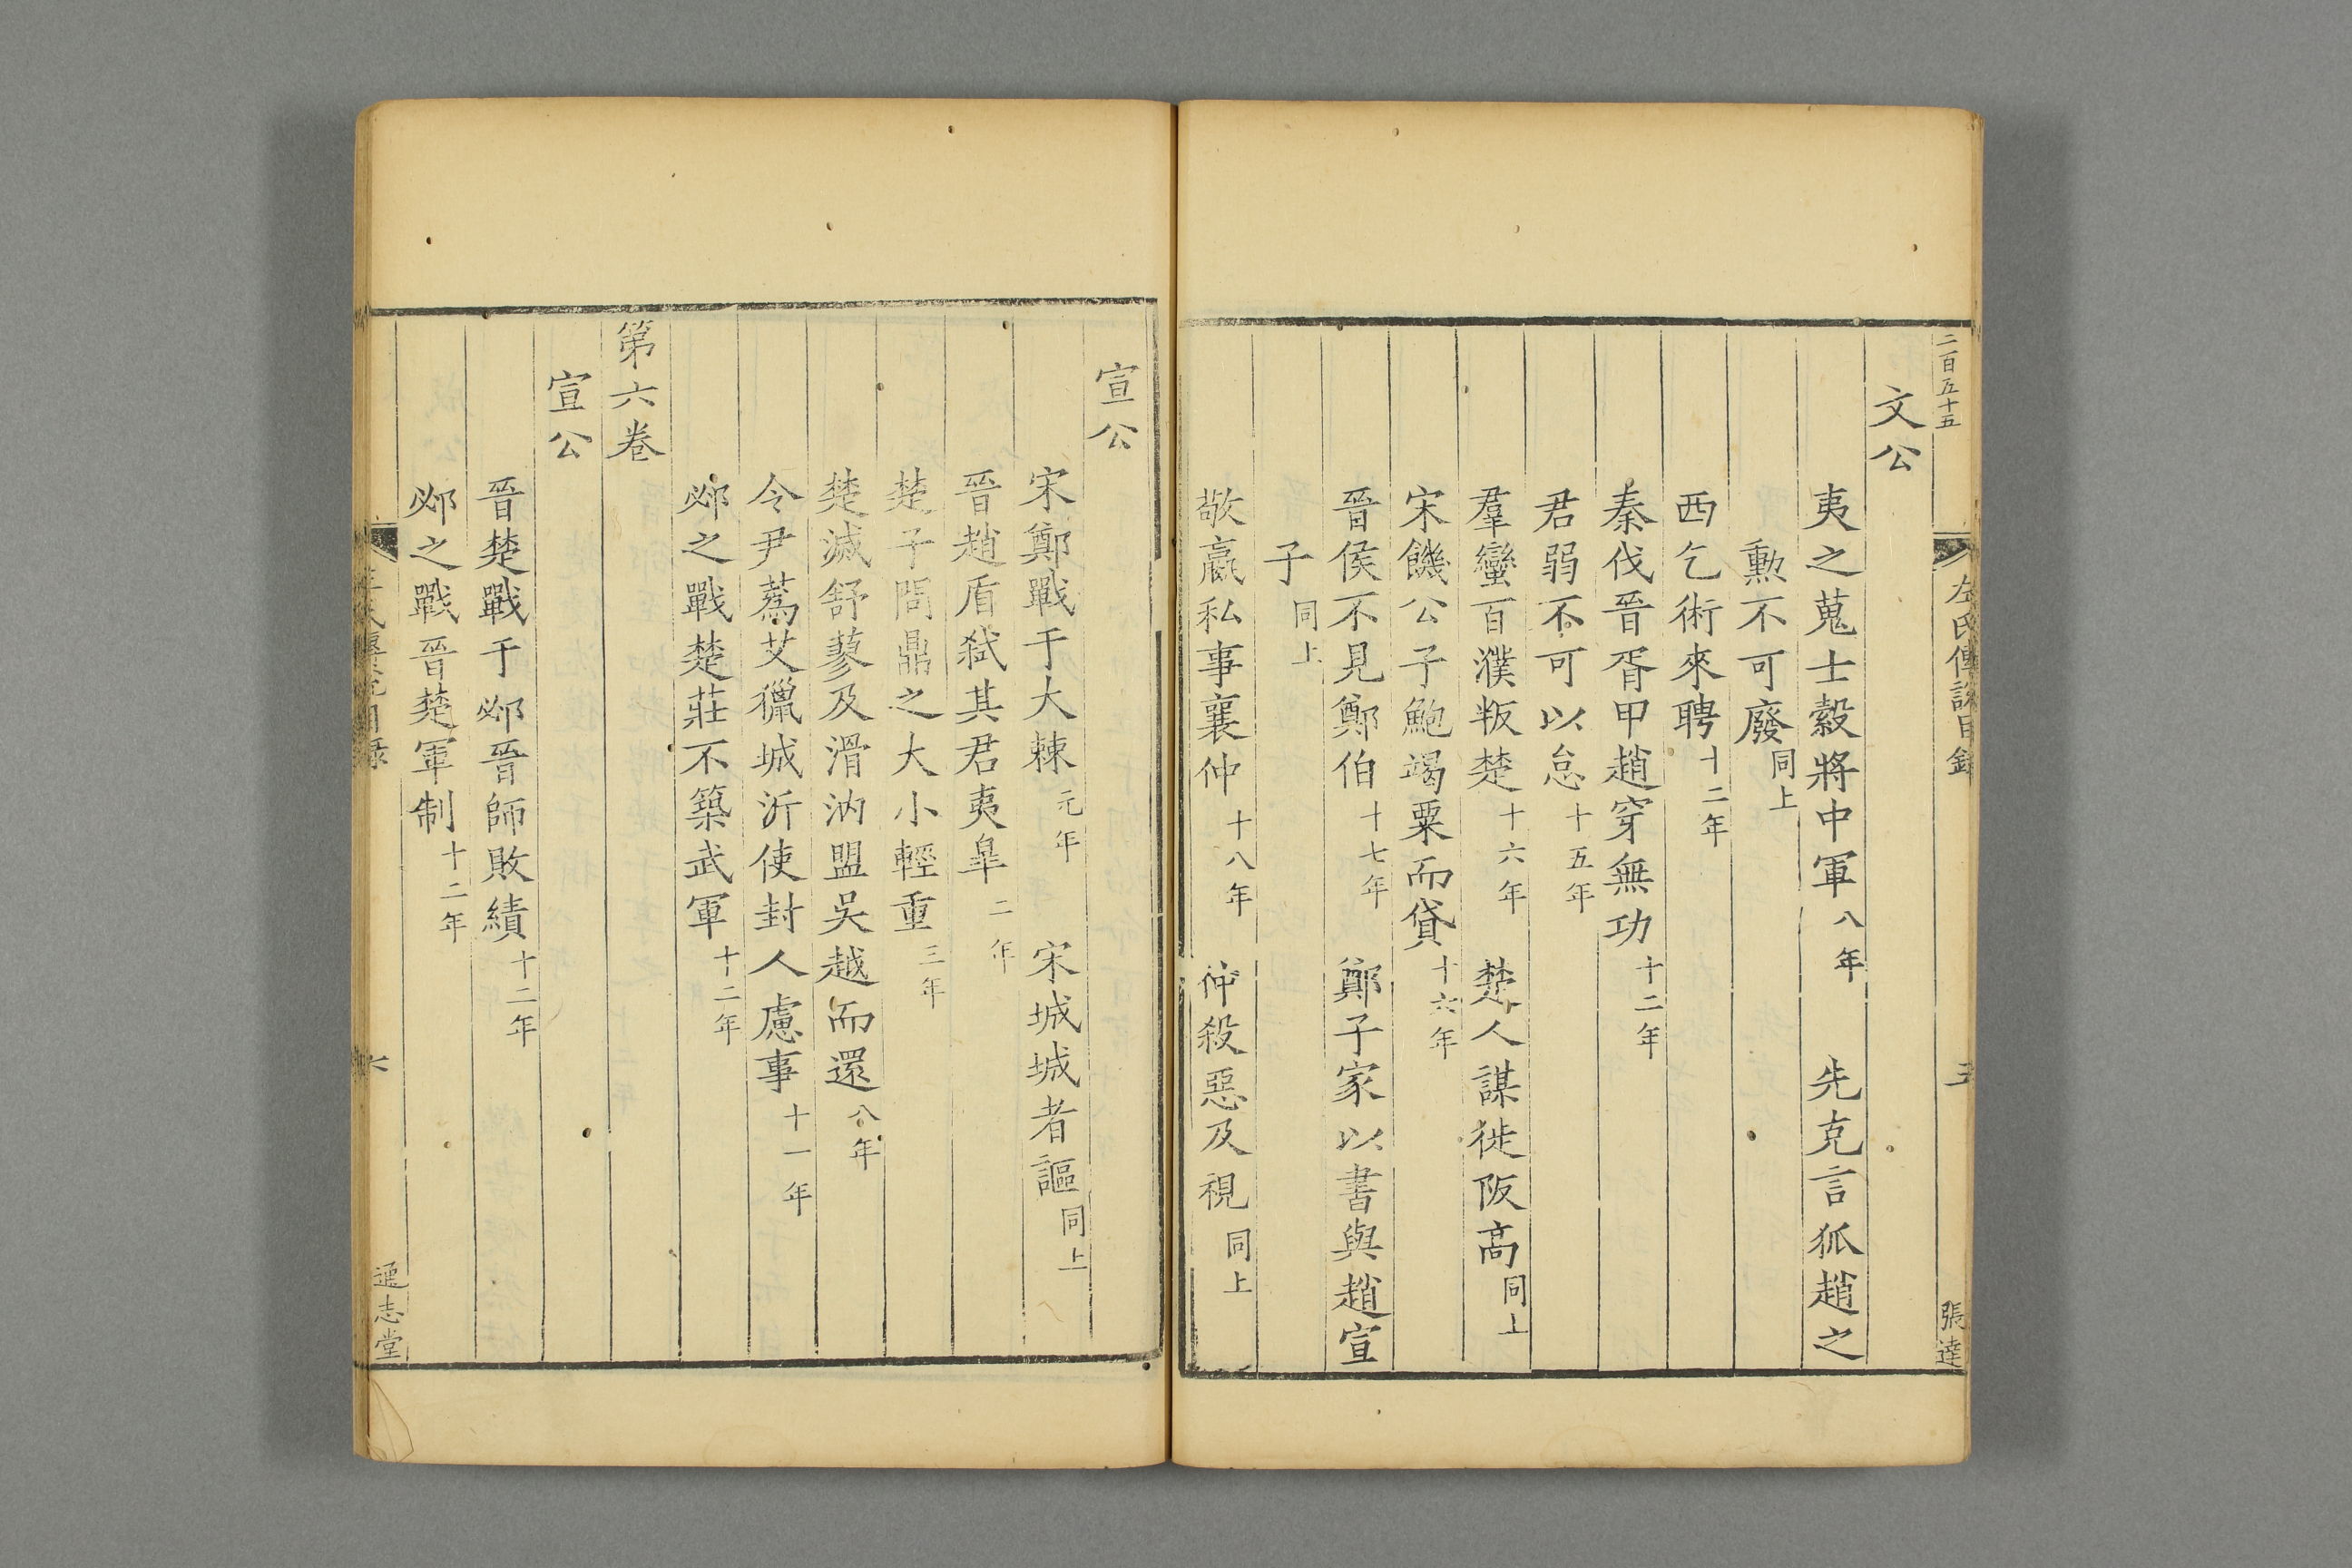 二百五十五 左氏傳說目錄 五 張達
文公
夷之蒐士縠將中軍八年 先克言狐趙之
勲不可廢同上
西乞術來聘十二年
秦伐晉胥甲趙穿無功十二年
君弱不可以怠十五年
羣蠻百濮叛楚十六年 楚人謀徙阪高同上
宋饑公子鮑竭粟而貸十六年
晉侯不見鄭伯十七年 鄭子家以書與趙宣
子同上
敬嬴私事襄仲十八年 仲殺惡及視同上
宣公
宋鄭戰于大棘元年 宋城城者謳同上
晉趙盾弑其君夷皐二年
楚子問鼎之大小輕重三年
楚滅舒蓼及滑汭盟吳越而還八年
令尹蒍艾獵城沂使封人慮事十一年
邲之戰楚莊不築武軍十二年
第六卷
宣公
晉楚戰于邲晉師敗績十二年
邲之戰晉楚軍制十二年
左氏傳說目錄 六 通志堂